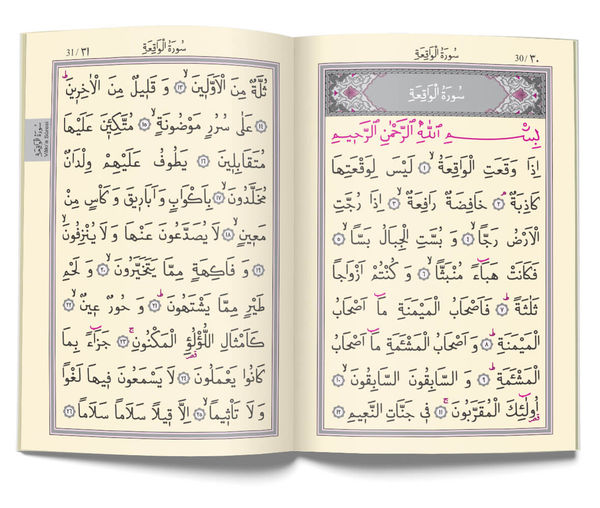 سُورَةُ الْوَاقِعَةِ 30 / ٣٠
سُورَةُ الْوَاقِعَةِ
بِسْــــمِ اللّٰهِ الرَّحْمٰنِ الرَّحِيمِ
اِذَا وَقَعَتِ الْوَاقِعَةُ ۙ ١ لَيْسَ لِوَقْعَتِهَا
كَاذِبَةٌ ۢ ٢ خَافِضَةٌ رَافِعَةٌ ۙ ٣ اِذَا رُجَّتِ
الْاَرْضُ رَجًّا ۙ ٤ وَ بُسَّتِ الْجِبَالُ بَسًّا ۙ ٥
فَكَانَتْ هَبَٓاءً مُنْبَثًّا ۙ ٦ وَ كُنْتُمْ اَزْوَاجًا
ثَلٰثَةً ۜ ٧ فَاَصْحَابُ الْمَيْمَنَةِ مَٓا اَصْحَابُ
الْمَيْمَنَةِ ۜ ٨ وَ اَصْحَابُ الْمَشْئَمَةِ مَٓا اَصْحَابُ
الْمَشْئَمَةِ ۜ ٩ وَ السَّابِقُونَ السَّابِقُونَ ۙ ١٠
اُو۬لٰٓئِكَ الْمُقَرَّبُونَ ۚ ١١ فِى جَنَّاتِ النَّعِيمِ ١٢
31 / ٣١ سُورَةُ الْوَاقِعَةِ
سُورَةُ الْوَاقِعَةِ
Vâkı'a Sûresi
ثُلَّةٌ مِنَ الْاَوَّلِينَ ۙ ١٣ وَ قَلِيلٌ مِنَ الْاٰخِرِينَ ۜ
١٤ عَلٰى سُرُرٍ مَوْضُونَةٍ ۙ ١٥ مُتَّكِئِينَ عَلَيْهَا
مُتَقَابِلِينَ ١٦ يَطُوفُ عَلَيْهِمْ وِلْدَانٌ
مُخَلَّدُونَ ۙ ١٧ بِاَكْوَابٍ وَ اَبَارِيقَ وَ كَاْسٍ مِنْ
مَعِينٍ ۙ ١٨ لَا يُصَدَّعُونَ عَنْهَا وَ لَا يُنْزِفُونَ ۙ
١٩ وَ فَاكِهَةٍ مِمَّا يَتَخَيَّرُونَ ۙ ٢٠ وَ لَحْمِ
طَيْرٍ مِمَّا يَشْتَهُونَ ۜ ٢١ وَ حُورٌ عِينٌ ۙ ٢٢
كَاَمْثَالِ اللُّؤْلُؤِ الْمَكْنُونِ ۚ ٢٣ جَزَٓاءً بِمَا
كَانُوا يَعْمَلُونَ ٢٤ لَا يَسْمَعُونَ فِيهَا لَغْوًا
وَ لَا تَاْثِيمًا ۙ ٢٥ اِلَّا قِيلًا سَلَامًا سَلَامًا ٢٦